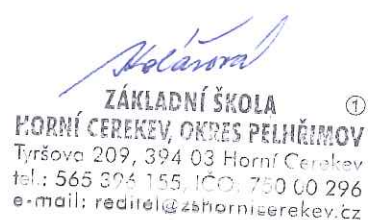 Kolářová
ZÁKLADNÍ ŠKOLA ①
HORNÍ CEREKEV, OKRES PELHŘIMOV
Tyršova 209, 394 03 Horní Cerekev
tel.: 565 396 155, IČO: 750 00 296
e-mail: reditel@zshornicerekev.cz